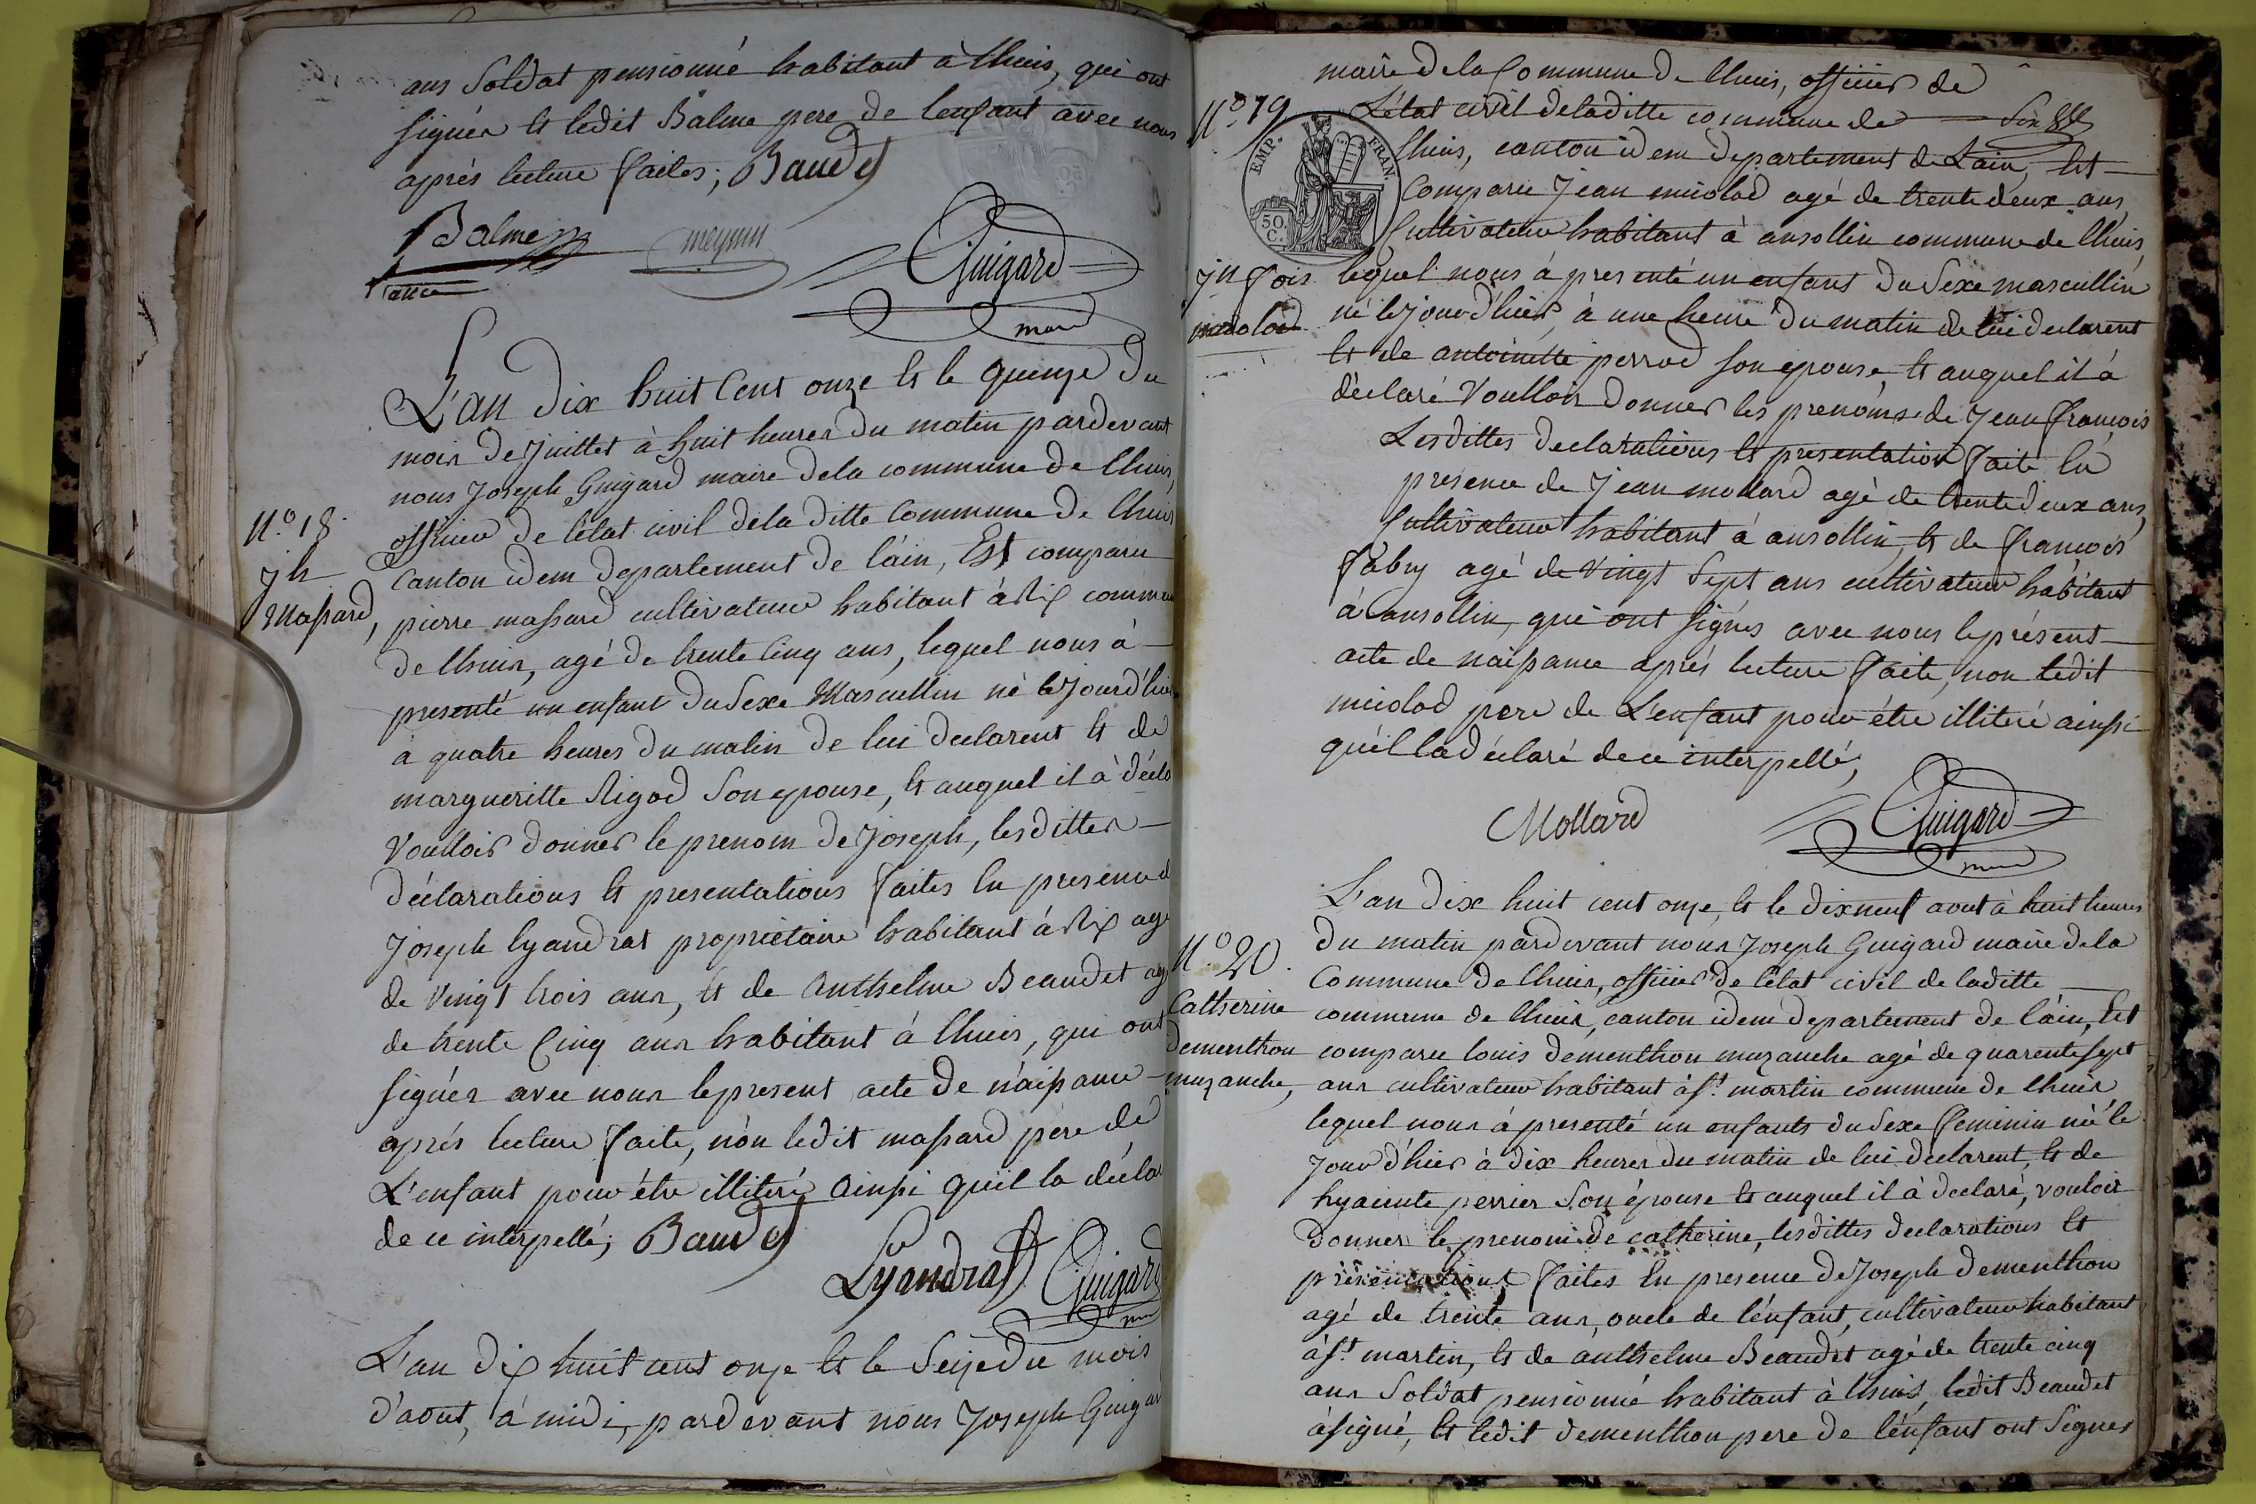 ans Soldat pensionné habitant à lhuis, qui ont
signés et ledit Balme pere de lenfant avec nous
aprés lecture faites; Baudet
Balme meynin Guigard
maire
L'an dix huit Cent onze et le quinze du
mois de Juillet à huit heures du matin pardevant
nous Joseph Guigard maire dela commune de lhuis,
officier de l'état civil dela ditte Commune de lhuis
N.o 18.
Canton idem departement de láin, Est comparu
jh
pierre massard cultivateur habitant à Rix commune
Massard,
de lhuis, agé de trente Cinq ans, lequel nous à
presenté un enfant du Sexe Mascullin né le jourd'hier
à quatre heures du matin de lui declarent et de
margueritte Rigod Son epouse, et auquel il à décla
Voulloir donner le prenom de Joseph, lesdittes
déclarations et presentations faites En presence d
Joseph lyandrat proprietaire habitant à Rix agé
de Vingt trois ans, et de Anthelme Beaudet agé
de trente Cinq ans habitant à lhuis, qui ont
signés avec nous le present acte de naissance
aprés lecture faite, nòn ledit massard père de
L'enfant pour être illiteré Ainssi quil la décla
de ce interpellé; Baudet
Lyandrat Guigard
L'an dix huit cent onze et le Seize du mois
d'aout, à midi, pardevant nous Joseph Guigard
maire dela Commune de lhuis, officier de
N.o 19
L'état civil deladitte commune de
EMP. FRAN.
50. C.
lhuis, canton idem departement de Lain, Est
Comparu Jean miolad agé de trente deux ans
Cultivateur habitant à ansollin commune de lhuis,
jn fois
lequel nous à presenté un enfant du Sexe mascullin
miolad
né le jour d'hier, à une heure du matin de lui declarent
et de antoinette perrod son épouse, et auquel il à
déclaré Voulloir donner les prenoms de Jean françois
Lesdittes declarations et presentation faite En
presence de Jean mollard agé de trente deux ans,
Cultivateur habitant à ansollin, et de françois
fabry agé de Vingt Sept ans cultivateur habitant
à ansollin, qui ont signés avec nous le présent
acte de naissance aprés lecture faite, non ledit
miolad pere de L'enfant pour être illiteré ainssi
quéil la déclaré de ce interpellé;
Mollard Guigard
maire
L'an dix huit cent onze, et le dixneuf aout à huit heures
du matin pardevant nous Joseph Guigard maire dela
N.o 20.
Commune de lhuis, officier de l'état civil de laditte
Catherine
commune de lhuis, canton idem departement de láin, Est
dementhon
comparu louis dementhon muzanche agé de quarente sept
muzanche,
ans cultivateur habitant à st. martin commune de lhuis,
lequel nous à presenté un enfants du Sexe feminin né le
jour d'hier à dix heures du matin de lui declarent, et de
hyacinte perrier Son épouse et auquel il à declaré, vouloir
donner le prenom de catherine, lesdittes declarations et
presentations faites En presence de Joseph dementhon
agé de trente ans, oncle de l'énfant, cultivateur habitant
à st. martin, et de anthelme Beaudet agé de trente cinq
ans Soldat pensionné habitant à lhuis, ledit Beaudet
à signé, et ledit dementhon pere de l'énfant ont Signes